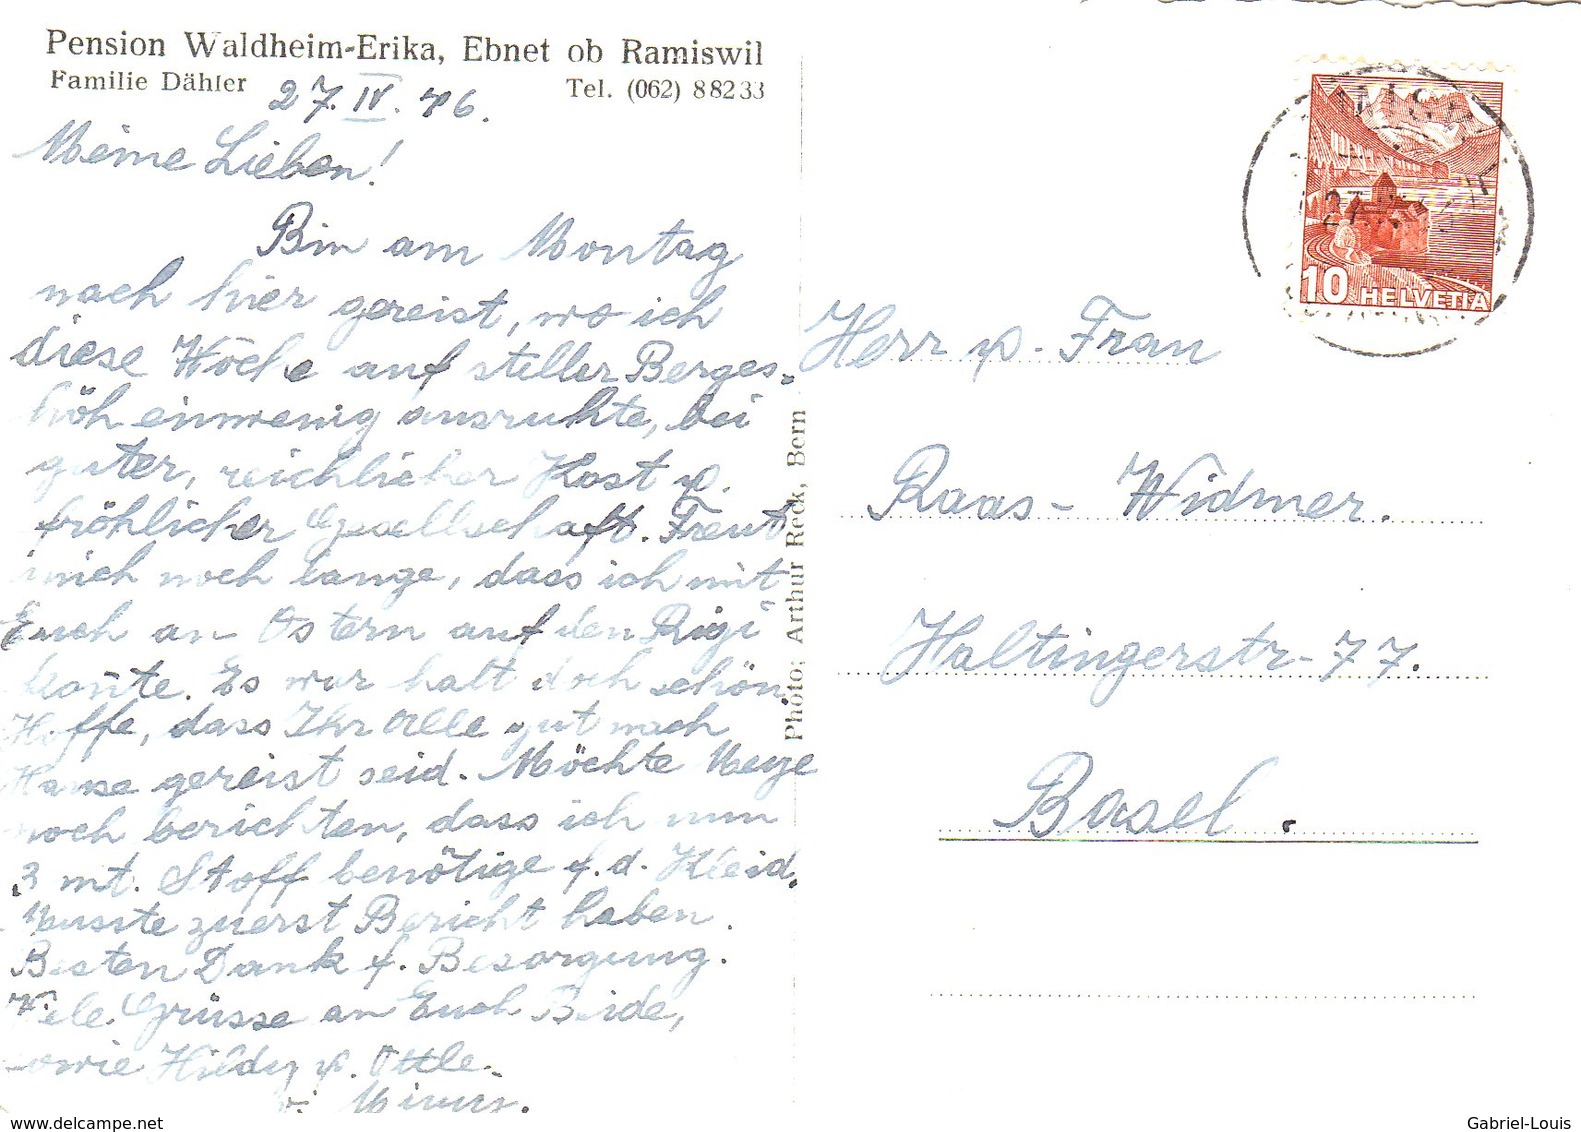 Pension Waldheim-Erika, Ebnet ob Ramiswil
Familie Dähler Tel. (062) 88233
27. IV. 46.
Meine Lieben!
Bin am Montag
nach hier gereist, wo ich
diese Woche auf steller Berges-
höh einwenig ausruhte, bei
guter, reichlicher Kost u.
fröhlicher Gesellschaft. Freut
mich noch lange, dass ich mit
Euch an Ostern auf den Rigi
konnte. Es war halt doch schön.
Hoffe, dass Ihr Alle gut nach
Hause gereist seid. Möchte
noch berichten, dass ich nun
3 mt. Stoff benötige f. d. Kleid.
Musste zuerst Bericht haben.
Besten Dank f. Besorgung.
Viele Grüsse an Euch Beide,
sowie Hildy u. Ottle.
Photo: Arthur Reck, Bern
10 HELVETIA
27
Herr u. Frau
Raas-Widmer.
Haltingerstr-77.
Basel.
www.delcampe.net
Gabriel-Louis